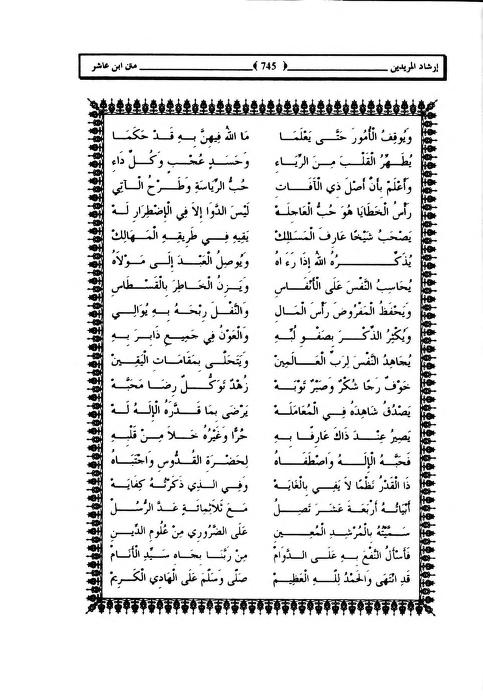 إرشاد المريدين ــــــ ﴿ 745 ﴾ ــــــ متن ابن عاشر
وَيُوقِفُ الْأُمُورَ حَتَّى يَعْلَمَا مَا اللهُ فِيهِنَّ بِهِ قَدْ حَكَمَا
يُطَهِّرُ الْقَلْبَ مِنَ الرِّيَاءِ وَحَسَدٍ عُجْبٍ وَكُلِّ دَاءِ
وَأَعْلَمْ بِأَنَّ أَصْلَ ذِي الْآفَاتِ حُبُّ الرِّيَاسَةِ وَطَرْحُ الْآتِي
رَأْسُ الْخَطَايَا هُوَ حُبُّ الْعَاجِلَهْ لَيْسَ الدَّوَا إِلَّا فِي الْإِضْطِرَارِ لَهْ
يَصْحَبُ شَيْخًا عَارِفَ الْمَسَالِكْ يَقِيهِ فِي طَرِيقِهِ الْمَهَالِكْ
يُذَكِّرُهُ اللهَ إِذَا رَءَاهُ وَيُوصِلُ الْعَبْدَ إِلَى مَوْلَاهُ
يُحَاسِبُ النَّفْسَ عَلَى الْأَنْفَاسِ وَيَزِنُ الْخَاطِرَ بِالْقِسْطَاسِ
وَيَحْفَظُ الْمَفْرُوضَ رَأْسَ الْمَالِ وَالنَّفْلَ رِبْحَهُ بِهِ يُوَالِي
وَيُكْثِرُ الذِّكْرَ بِصَفْوِ لُبِّهِ وَالْعَوْنُ فِي جَمِيعِ ذَا بِرَبِّهِ
يُجَاهِدُ النَّفْسَ لِرَبِّ الْعَالَمِينْ وَيَتَحَلَّى بِمَقَامَاتِ الْيَقِينْ
خَوْفٌ رَجَا شُكْرٌ وَصَبْرٌ تَوْبَهْ زُهْدٌ تَوَكُّلٌ رِضَا مَحَبَّهْ
يَصْدُقُ شَاهِدَهُ فِي الْمُعَامَلَهْ يَرْضَى بِمَا قَدَّرَهُ الْإِلَهُ لَهْ
يَصِيرُ عِنْدَ ذَاكَ عَارِفًا بِهِ حُرًّا وَغَيْرُهُ خَلَا مِنْ قَلْبِهِ
فَحَبَّهُ الْإِلَهُ وَاصْطَفَاهُ لِحَضْرَةِ الْقُدُّوسِ وَاجْتَبَاهُ
ذَا الْقَدْرُ نَظْمًا لَا يَفِي بِالْغَايَهْ وَفِي الَّذِي ذَكَرْتُهُ كِفَايَهْ
أَبْيَاتُهُ أَرْبَعَةَ عَشَرَ تَصِلْ مَعَ ثَلَاثِمِائَةٍ عَدَّ الرُّسُلْ
سَمَّيْتُهُ بِالْمُرْشِدِ الْمُعِينِ عَلَى الضَّرُورِي مِنْ عُلُومِ الدِّينِ
فَأَسْأَلُ النَّفْعَ بِهِ عَلَى الدَّوَامْ مِنْ رَبِّنَا بِجَاهِ سَيِّدِ الْأَنَامْ
قَدِ انْتَهَى وَالْحَمْدُ لِلهِ الْعَظِيمْ صَلَّى وَسَلَّمَ عَلَى الْهَادِي الْكَرِيمْ